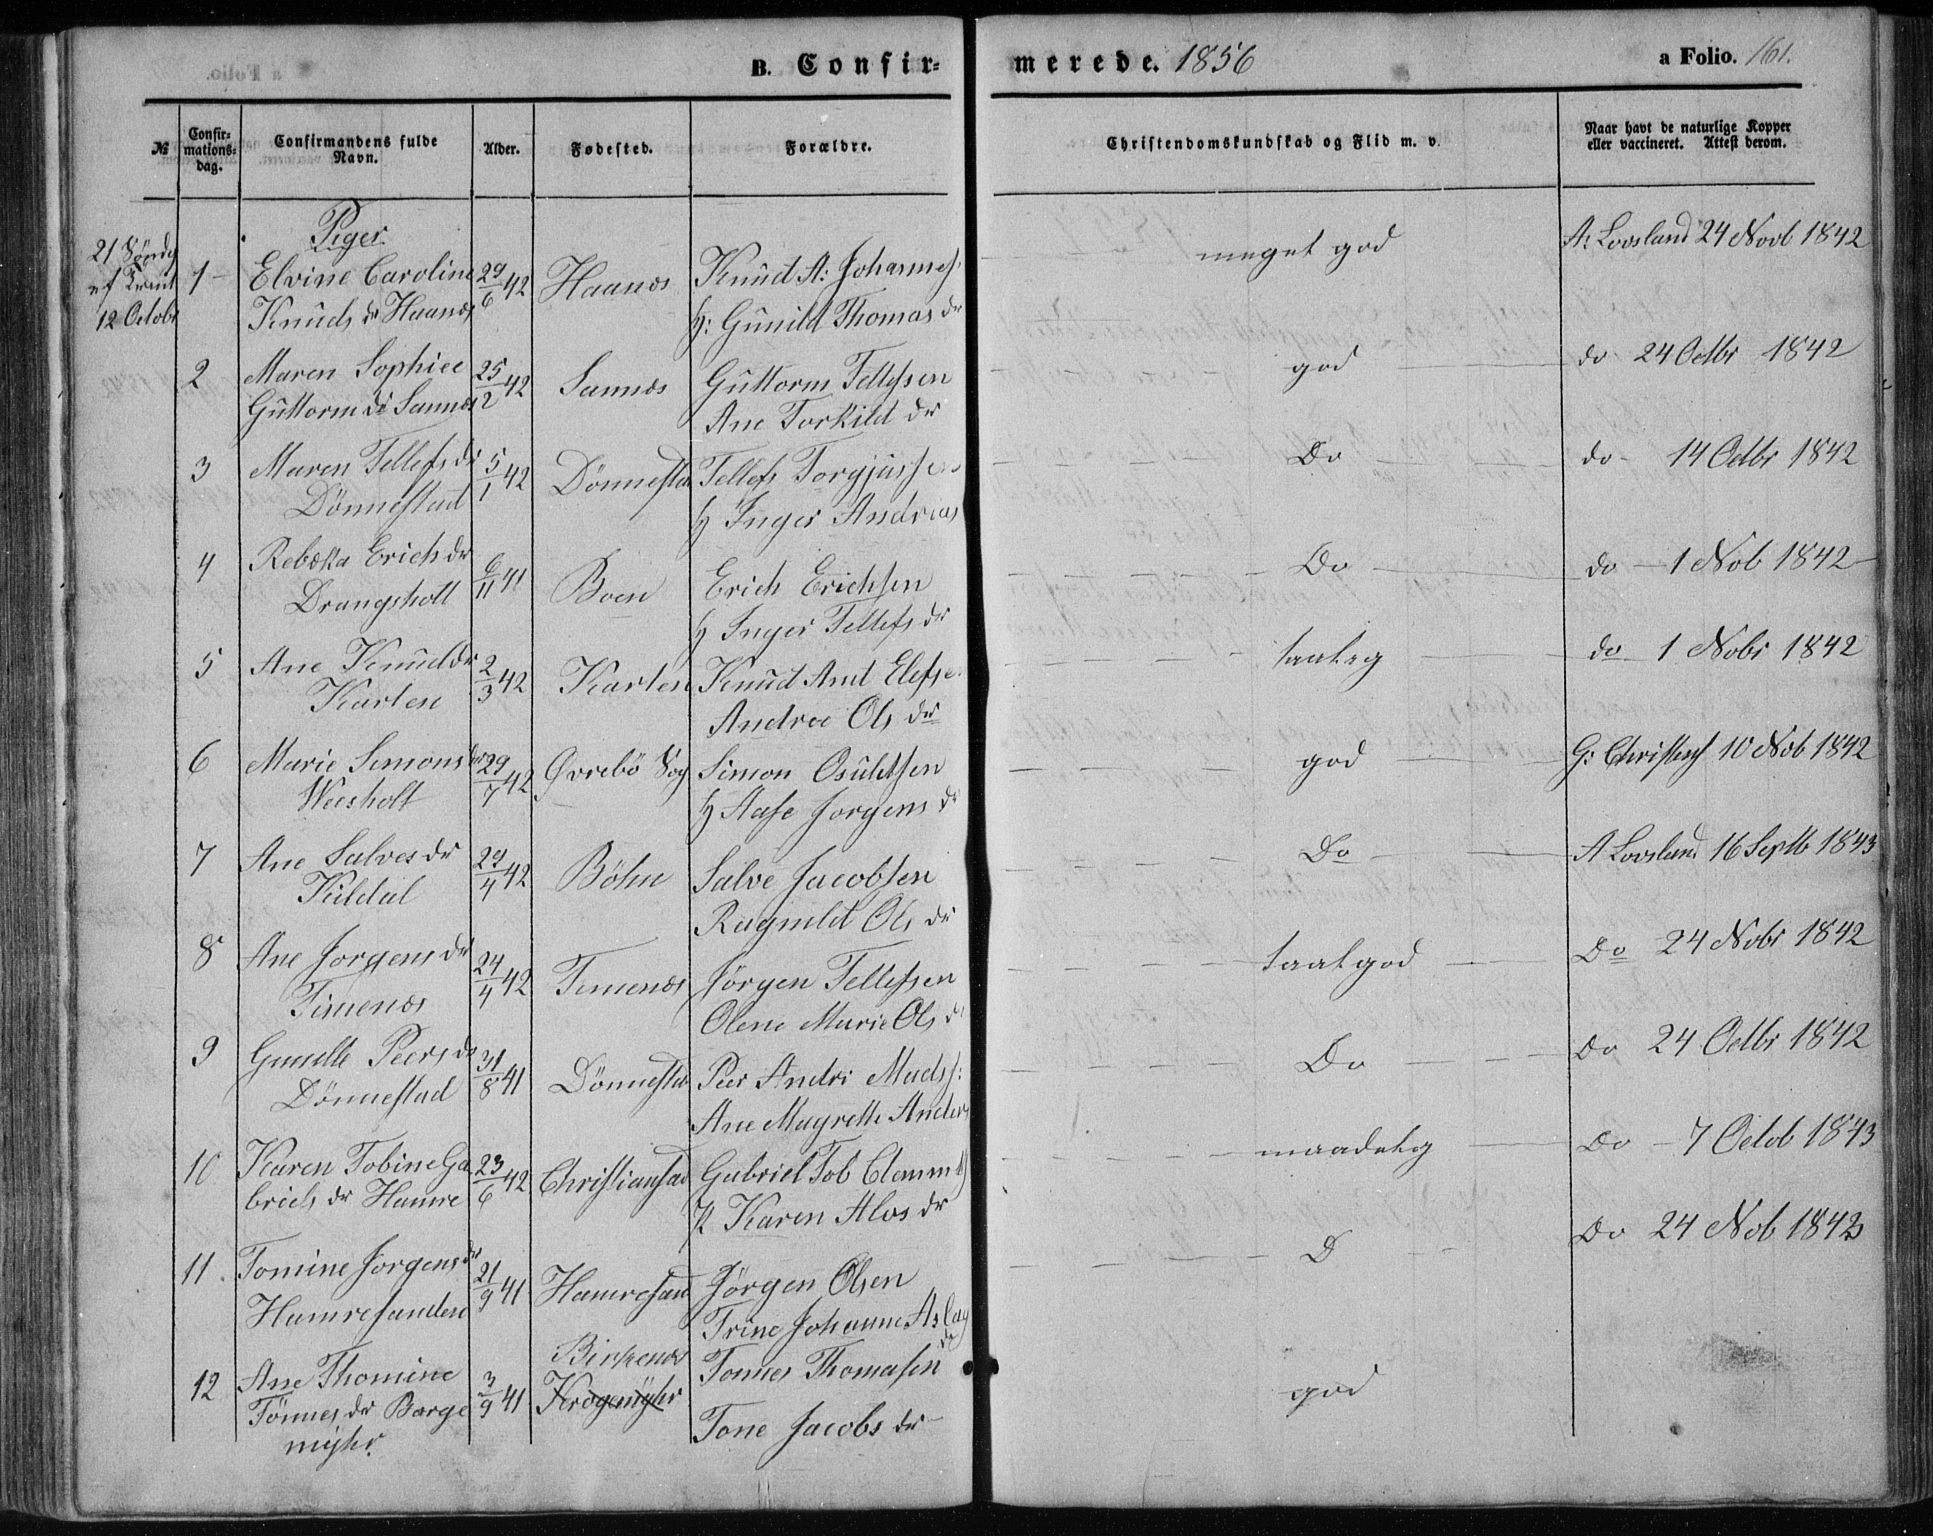 B. Confir-
merede. 1856
a Folio. 161.
№
Confir-
mations-
dag.
Confirmandens fulde
Navn.
Alder.
Fødested.
Forældre.
Christendomskundskab og Flid m. v.
Naar havt de naturlige Kopper
eller vaccineret. Attest derom.
Piger
12 Octobr
1 Elvine Caroline 29/6 42 Haanes Knud A: Johannes. meget god A: Lovsland 24 Novb 1842
Knuds dr Haanes H: Gunild Thomas dr
2 Maren Sophiee 25/2 42 Sannes Guttorm Tellefsen god do 24 Octbr 1842
Guttorm dr Sannes Ane Torkild dr
3 Maren Tellefs dr 5/1 42 Dönnestad Tellef Torgjussen Do do 14 Octbr 1842
Dönnestad H Inger Andreas
4 Rebekka Erichs dr 6/11 41 Boen Erich Erichsen Do do 1 Nob 1842
Drangsholt H Inger Tellefs dr
5 Ane Knuds dr 2/3 42 Karten Knud Ant Elefse taaleg do 1 Nobr 1842
Karten Andrea Ols dr
6 Marie Simons dr 29/7 42 Øvrebö Sog Simon Osuldsen god G: Christens 10 Nob 1842
Weesholt H Aase Jorgens dr
7 Ane Salves dr 29/4 42 Böhn Salve Jacobsen Do A Lovsland 16 Septb 1843
Kildal Ragnild Ols dr
8 Ane Jorgens dr 24/4 42 Timenes Jörgen Tellefsen taal god Do 24 Nobr 1842
Timenes Olene Marie Ols dr
9 Gunille Peers dr 31/8 41 Dönnestad Peer Andri Mads: Do Do 24 Octbr 1842
Dönnestad Ane Magrette Anders
10 Karen Tobine Ga 23/6 42 Christiansad Gabriel Tob Clemm maadelig Do 7 Octob 1843
briels dr Hamre Karen Alvs dr
11. Tomine Jorgens dr 21/9 41 Hamresand Jörgen Olsen D Do 24 Nob 1842
Hamresanden Trine Johanne Aslag
dr
12 Ane Thomine 3/9 41 Birkenes Tonnes Thomasen god
Tönnes dr Barge Krogemyhr Tone Jacobs dr
myhr.